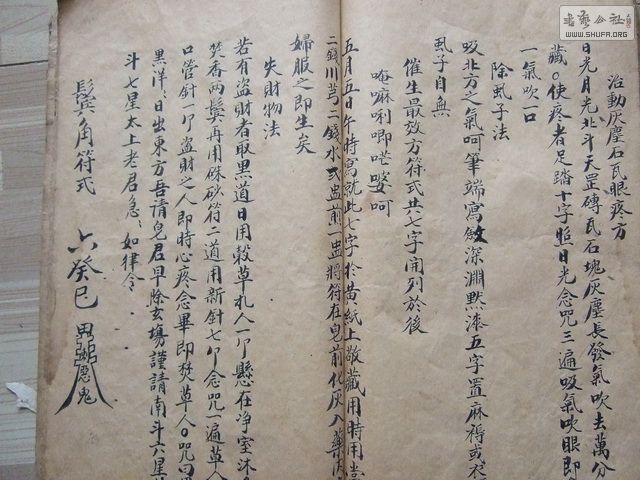 治動灰塵石瓦眼疼方
日光月光北斗天罡磚瓦石塊灰塵長發氣吹去萬分
藏○使疼者足踏十字照日光念咒三遍吸氣吹眼即
一氣吹一口
除虱子法
吸北方之氣呵筆端寫敛深淵默漆五字置麻褥或衣
虱子自無
催生最效方符式共七字開列於後
唵嘛唎唧
呵
五月五日午時寫就此七字於黃紙上敬藏用時用當
二錢川芎二錢水弍盅煎一盅將符在皂前化灰入藥
婦服之即生矣
失財物法
若有盜財者取黑道日用穀草扎人一个懸在净室沐
焚香兩鬓再用硃砂符二道用新針七个念咒一遍草人
口管針一个盜財之人即時心疼念畢即焚草人○咒曰
黑洋〻日出東方吾請皃君早除玄塲謹請南斗六星
斗七星太上老君急〻如律令
鬓角符式
癸巳
鬼
書藝公社
WWW.SHUFA.ORG